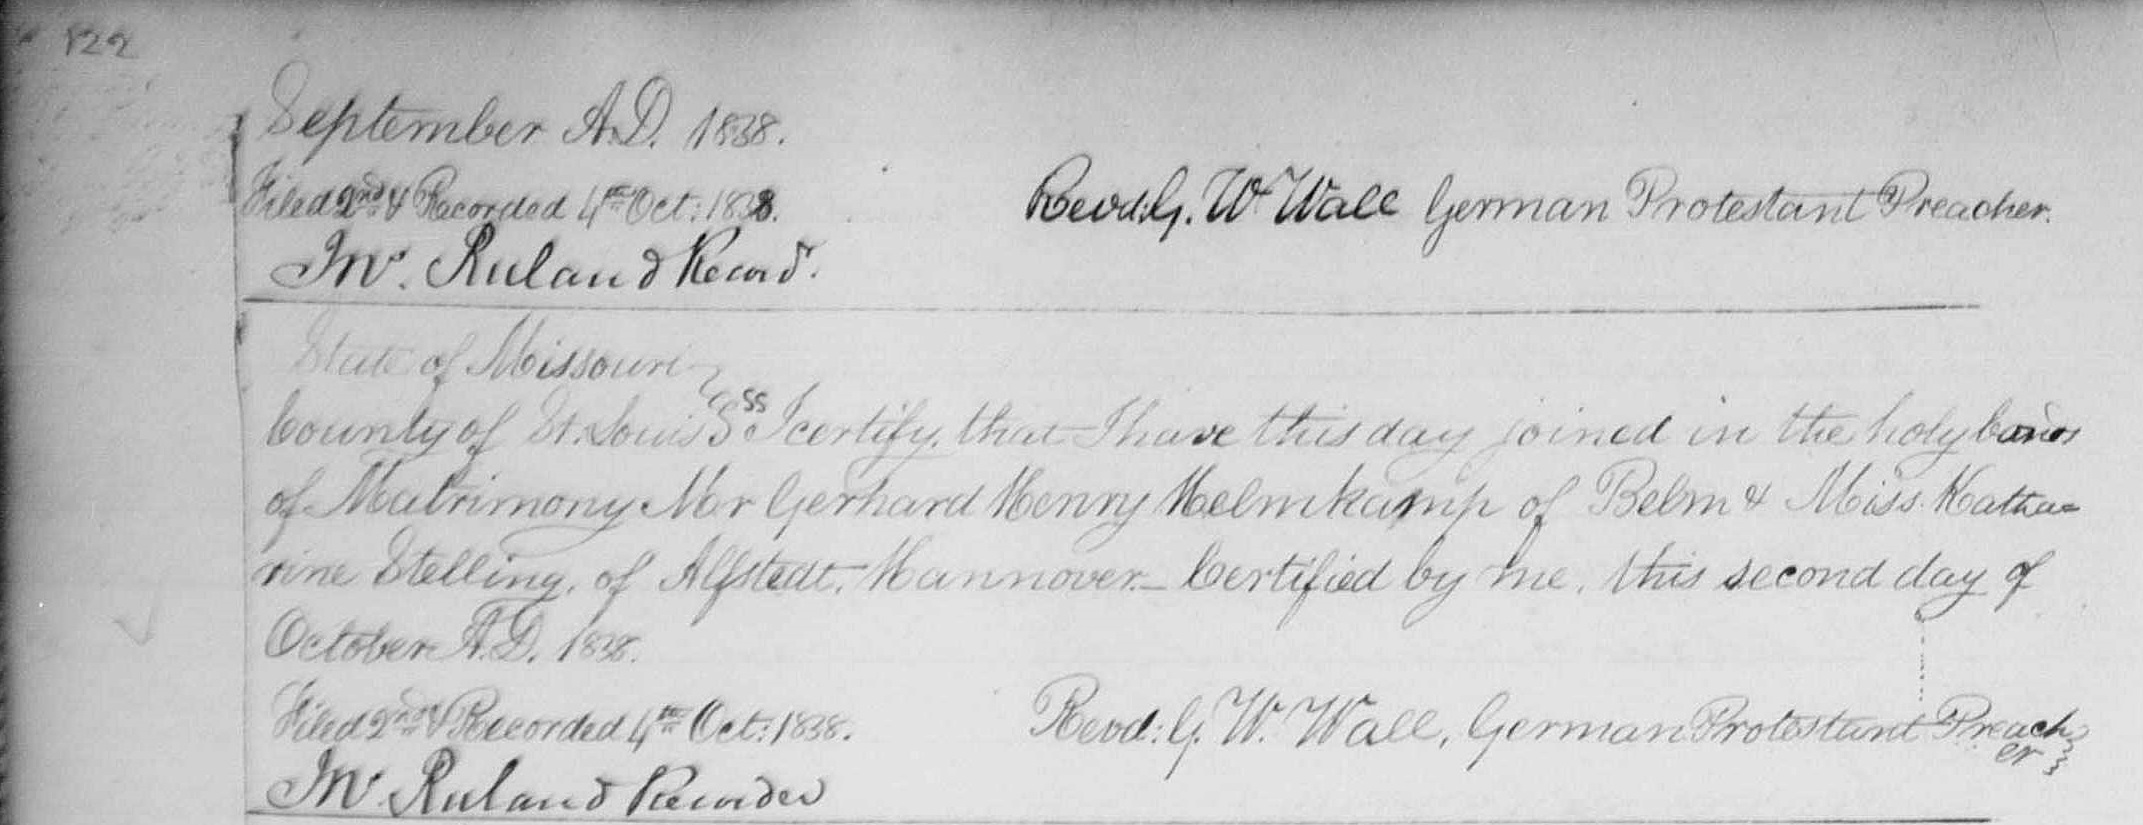 122
September A.D. 1838.
Filed 2nd & Recorded 4th Oct: 1838. Revd: G. W. Wall German Protestant Preacher.
Jno. Ruland Recordr.
State of Missouri
County of St. Louis ss I certify, that I have this day joined in the holy bands
of Matrimony Mr Gerhard Henry Helmkamp of Belm & Miss Katha=
rine Stelling, of Alfstedt, Hannover. Certified by me, this second day of
October A.D. 1838.
Filed 2nd & Recorded 4th Oct: 1838. Revd: G. W. Wall, German Protestant Preach
er
Jno. Ruland Recorder